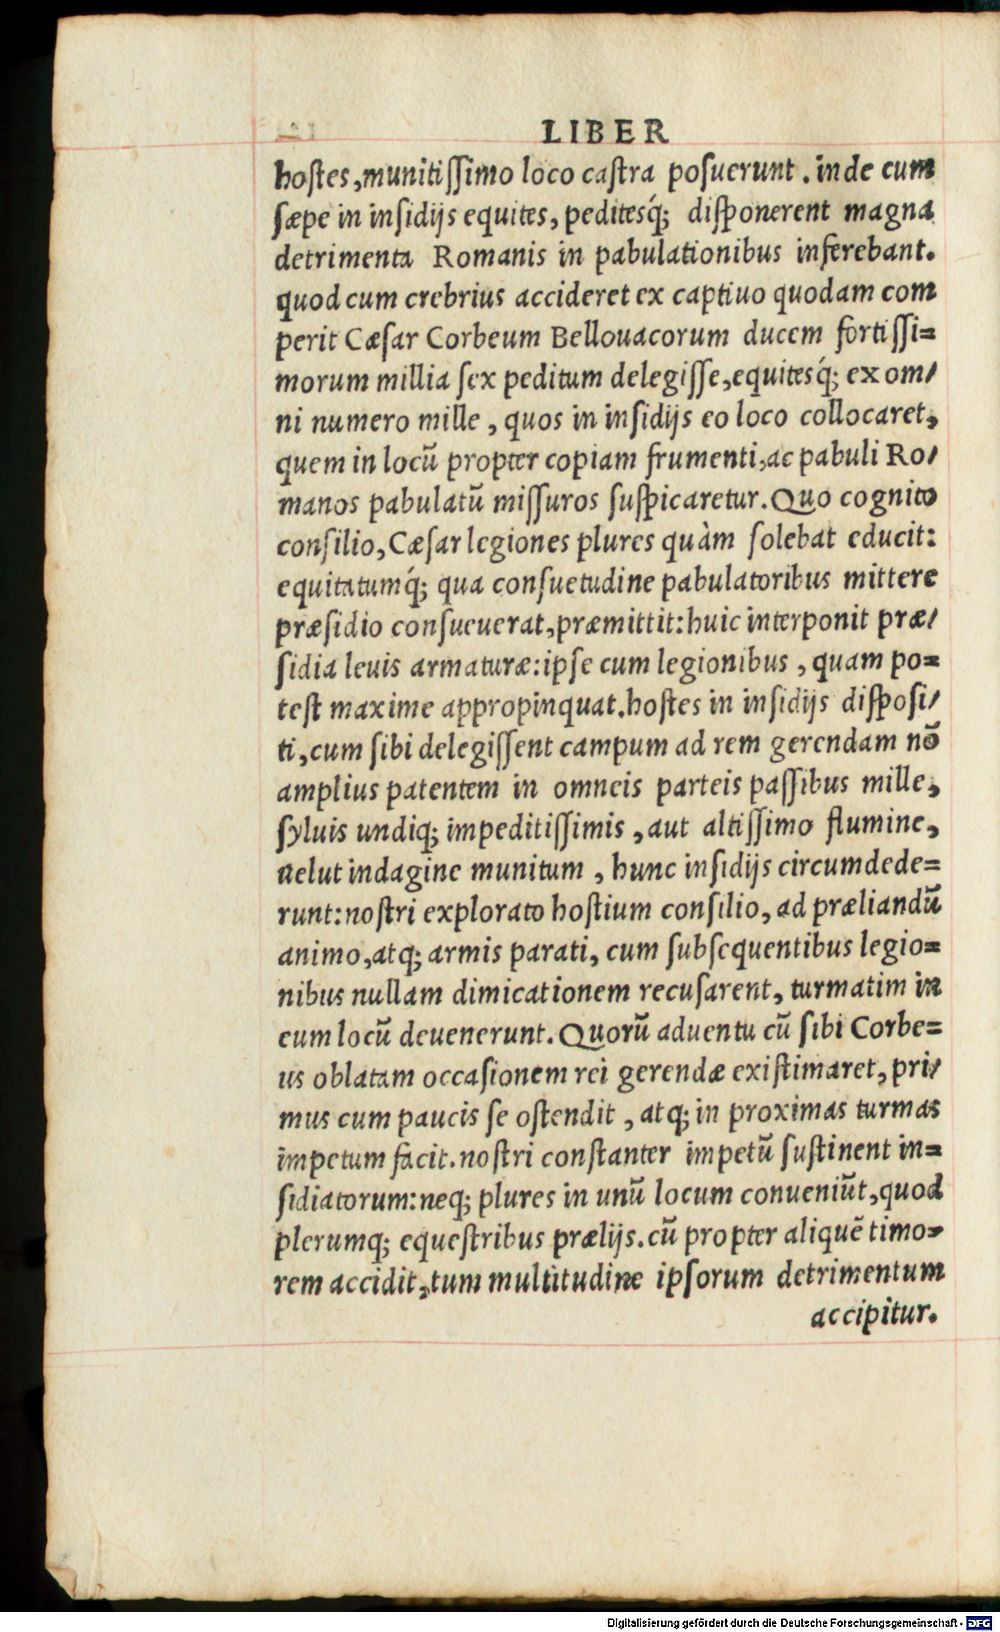 LIBER
hoſtes,munitiſſimo loco caſtra poſuerunt. inde cum
ſæpe in inſidijs equites, peditesq́; diſponerent magna
detrimenta Romanis in pabulationibus inferebant.
quod cum crebrius accideret ex captiuo quodam com
perit Cæſar Corbeum Bellouacorum ducem fortiſſi=
morum millia ſex peditum delegiſſe,equitesq́; ex om/
ni numero mille, quos in inſidijs eo loco collocaret,
quem in locũ propter copiam frumenti,ac pabuli Ro/
manos pabulatũ miſſuros ſuſpicaretur. Quo cognito
conſilio, Cæſar legiones plures quàm ſolebat educit:
equitatumq́; qua conſuetudine pabulatoribus mittere
præſidio conſueuerat,præmittit:huic interponit præ/
ſidia leuis armaturæ:ipſe cum legionibus, quam po=
teſt maxime appropinquat.hoſtes in inſidijs diſpoſi/
ti, cum ſibi delegiſſent campum ad rem gerendam nõ
amplius patentem in omneis parteis paſſibus mille,
ſyluis undiq; impeditiſſimis, aut altiſſimo flumine,
uelut indagine munitum, hunc inſidijs circumdede=
runt:noſtri explorato hoſtium conſilio, ad præliandũ
animo,atq; armis parati, cum ſubſequentibus legio=
nibus nullam dimicationem recuſarent, turmatim in
eum locũ deuenerunt. Quorũ aduentu cũ ſibi Corbe=
us oblatam occaſionem rei gerendæ exiſtimaret, pri/
mus cum paucis ſe oſtendit, atq; in proximas turmas
impetum facit.noſtri conſtanter impetũ ſuſtinent in=
ſidiatorum:neq; plures in unũ locum conueniũt,quod
plerumq; equeſtribus prælijs.cũ propter aliquẽ timo=
rem accidit, tum multitudine ipſorum detrimentum
accipitur.
Digitalisierung gefördert durch die Deutsche Forschungsgemeinschaft - DFG